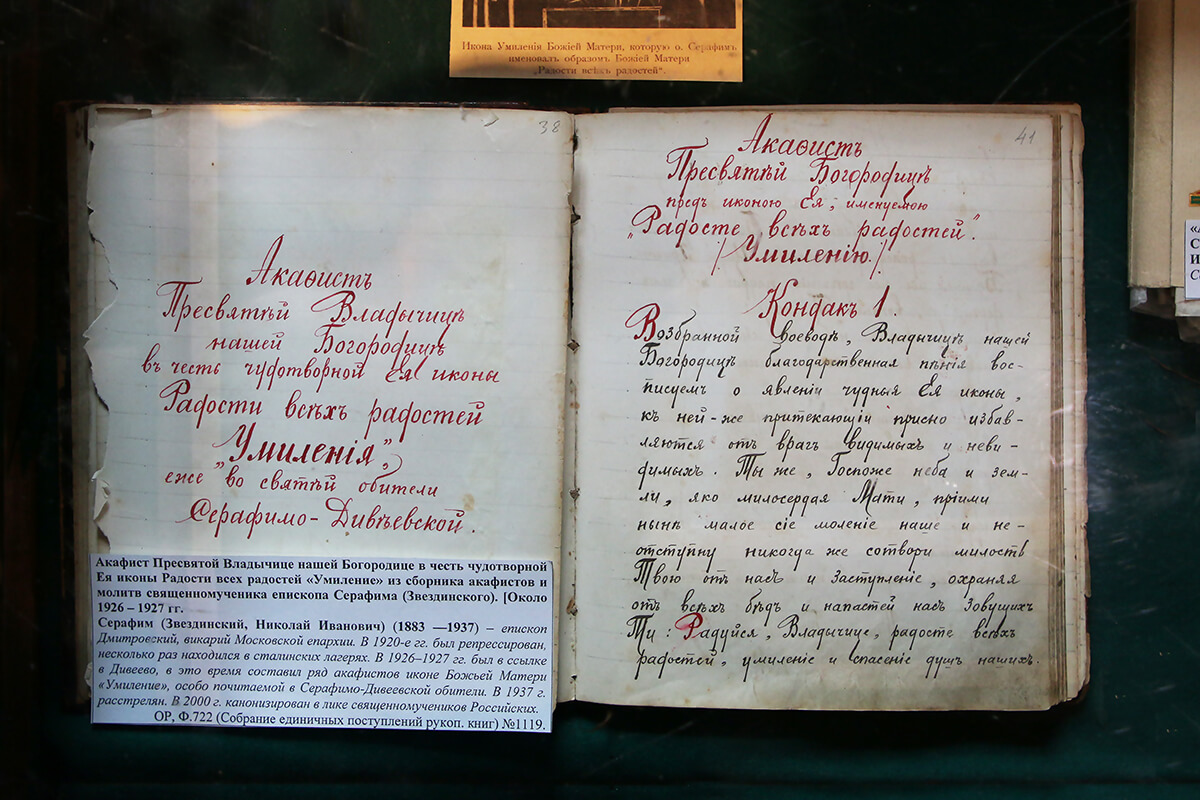 Икона Умиленія Божіей Матери, которую о. Серафимъ
именовалъ образомъ Божіей Матери
„Радости всѣхъ радостей“.
38
Акаѳистъ
Пресвятѣй Владычицѣ
нашей Богородицѣ
въ честь чудотворной Ея иконы
Радости всѣхъ радостей
„Умиленія”,
еже во святѣй обители
Серафимо-Дивѣевской.
Акафист Пресвятой Владычице нашей Богородице в честь чудотворной
Ея иконы Радости всех радостей «Умиление» из сборника акафистов и
молитв священномученика епископа Серафима (Звездинского). [Около
1926 – 1927 гг.
Серафим (Звездинский, Николай Иванович) (1883 —1937) – епископ
Дмитровский, викарий Московской епархии. В 1920-е гг. был репрессирован,
несколько раз находился в сталинских лагерях. В 1926–1927 гг. был в ссылке
в Дивеево, в это время составил ряд акафистов иконе Божьей Матери
«Умиление», особо почитаемой в Серафимо-Дивеевской обители. В 1937 г.
расстрелян. В 2000 г. канонизирован в лике священномучеников Российских.
ОР, Ф.722 (Собрание единичных поступлений рукоп. книг) №1119.
41
Акаѳистъ
Пресвятѣй Богородицѣ
предъ иконою Ея, именуемою
„Радосте всѣхъ радостей”.
/Умиленію./
Кондакъ 1.
Возбранной воеводѣ, Владычицѣ нашей
Богородицѣ благодарственная пѣнія вос-
писуемъ о явленіи чудныя Ея иконы,
къ ней-же притекающіи присно избав-
ляются отъ врагъ видимыхъ и неви-
димыхъ. Ты же, Госпоже неба и зем-
ли, яко милосердая Мати, пріими
нынѣ малое сіе моленіе наше и не-
отступну никогда же сотвори милость
Твою отъ насъ и заступленіе, охраняя
отъ всѣхъ бѣдъ и напастей насъ зовущихъ
Ти: Радуйся, Владычице, радосте всѣхъ
радостей, умиленіе и спасеніе душъ нашихъ.